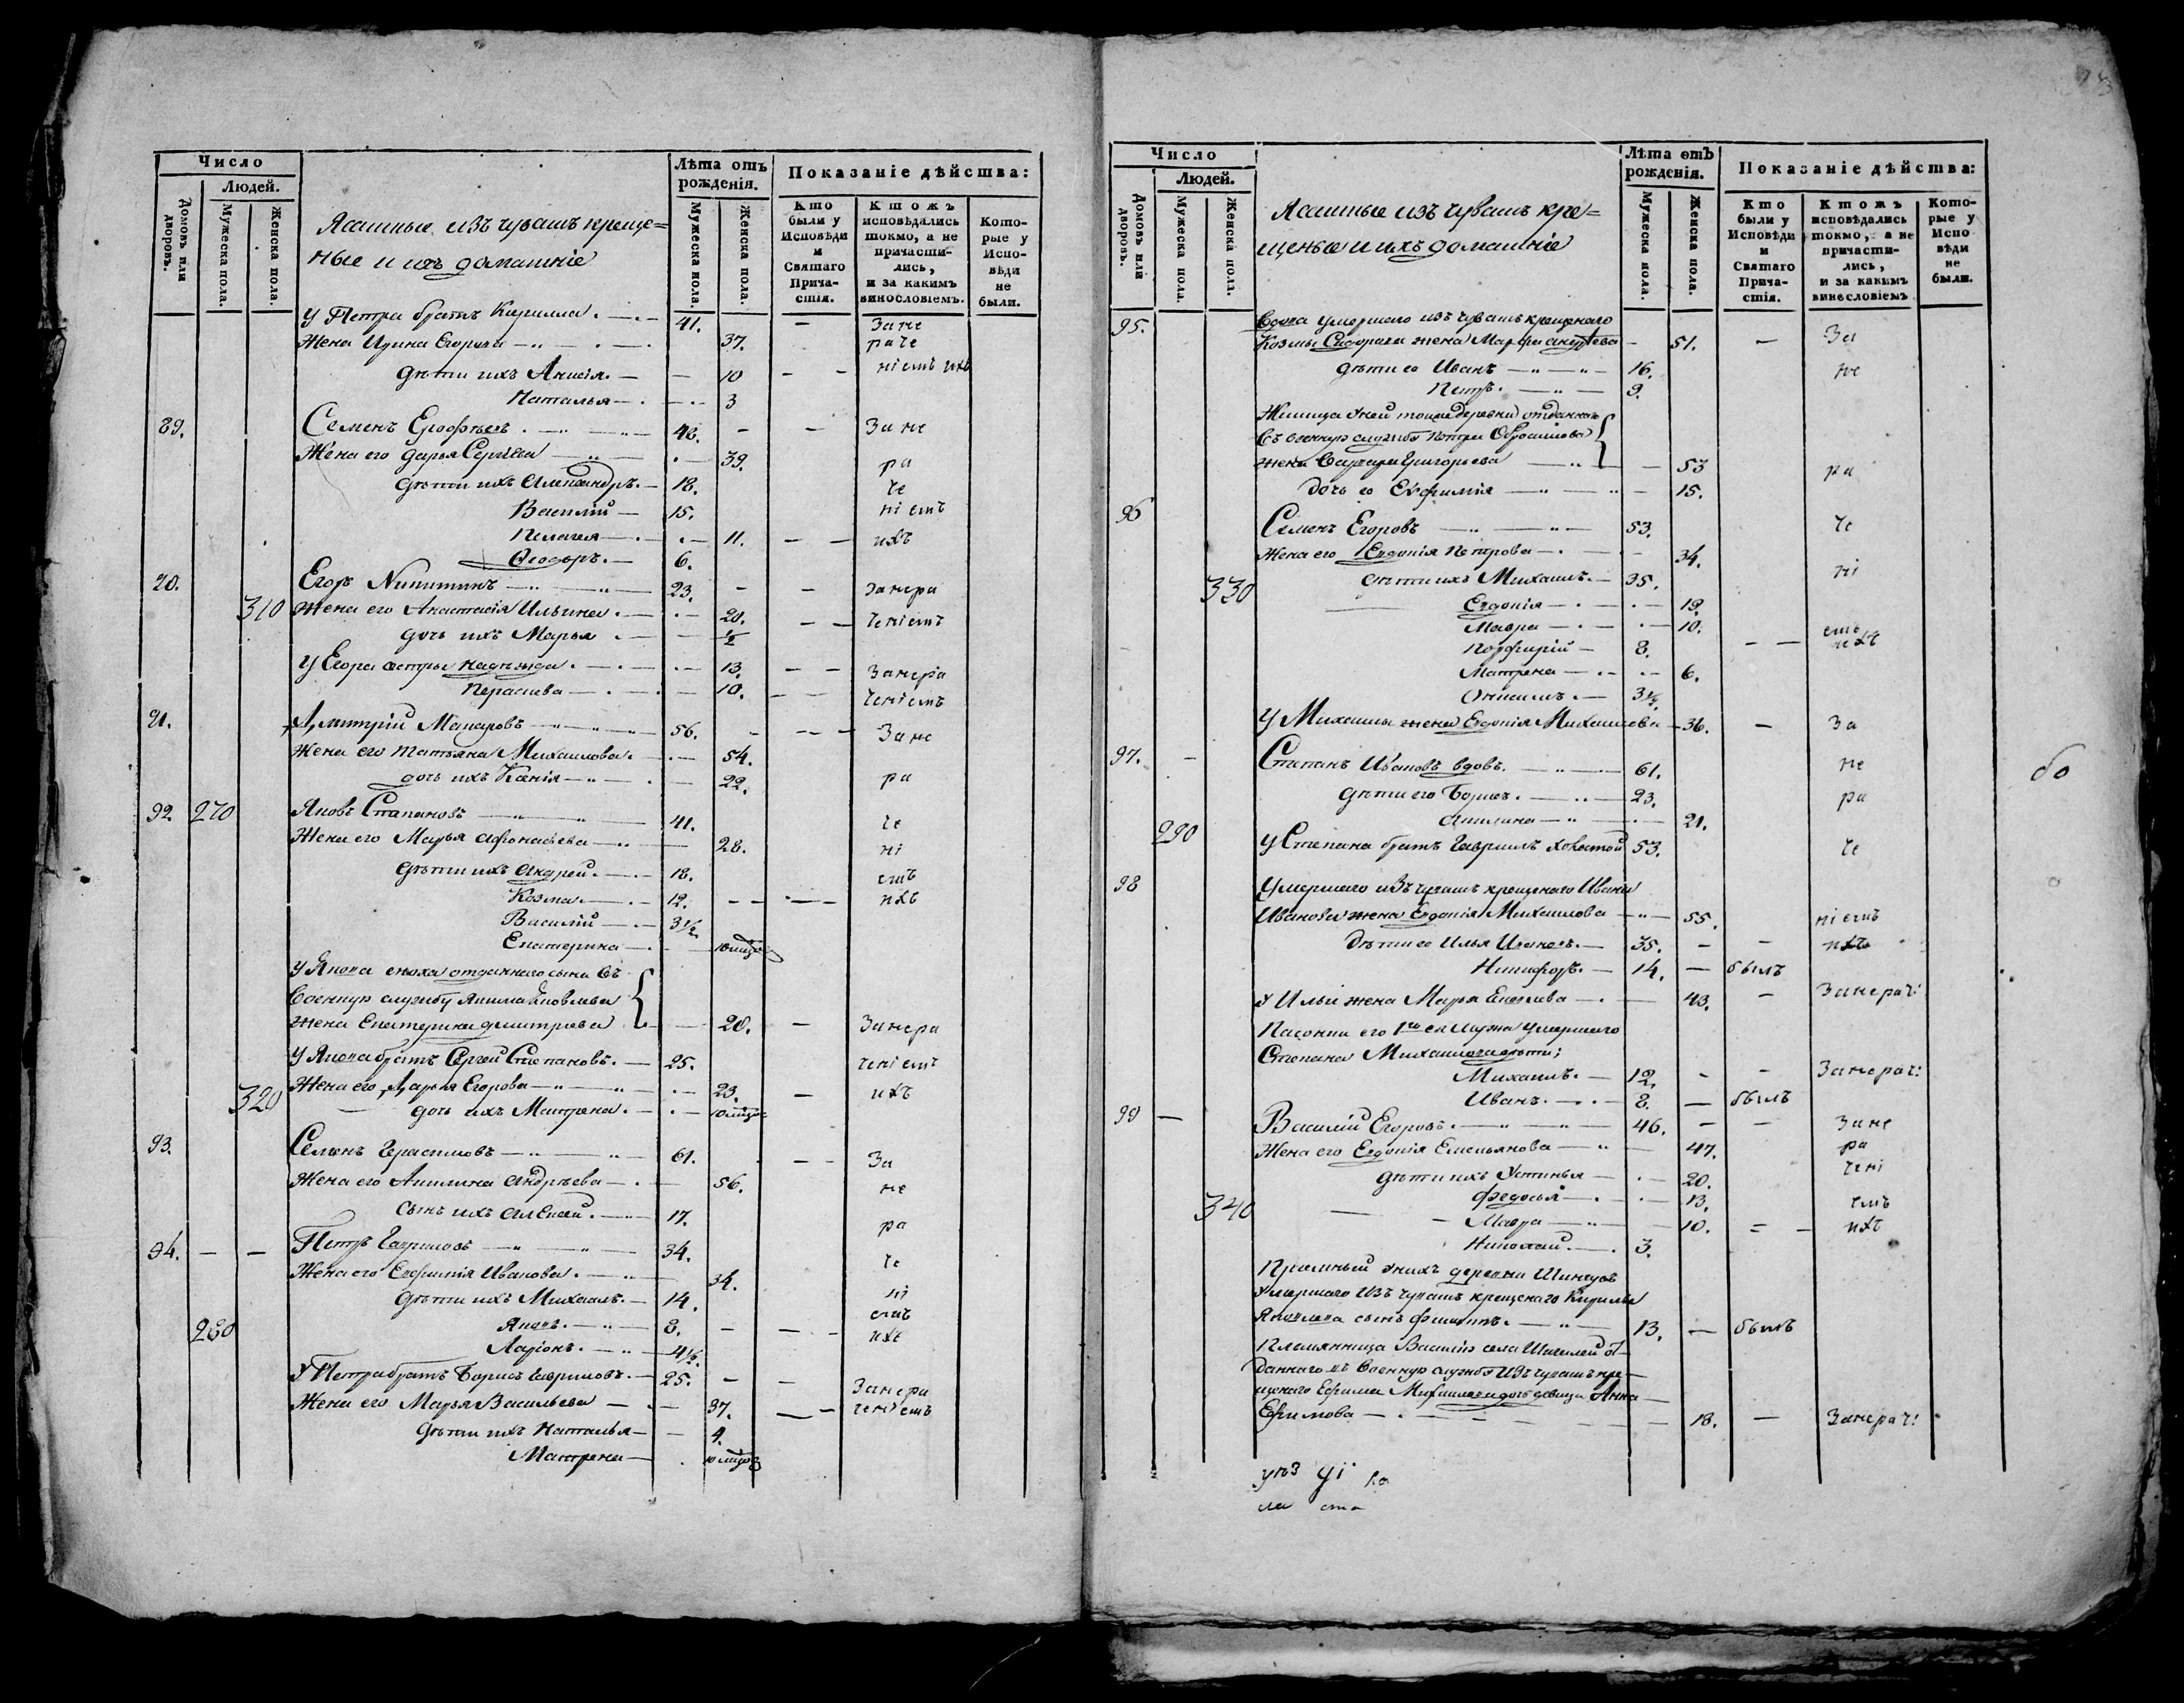 Число
Людей.
Домовъ или дворовъ.
Мужеска пола.
Женска пола.
Ясашные изъ чувашъ креще=
ные и ихъ домашніе
Лѣта отъ рожденія.
Мужеска пола.
Женска пола.
Показаніе дѣйства:
Кто были у Исповѣди и Святаго Прича-стія.
Ктожъ исповѣдались токмо, а не причасти-лись, и за какимъ винословіемъ.
Кото-рые у Испо-вѣди не были.
У Петра братъ Кирилла 41. — За не
Жена Ирина Егорова 37. раче
дѣти ихъ Анисія — 10 — — ніемъ ихъ
Наталья 3
89. Семенъ Ерофѣевъ 48. — — За не
Жена его Дарья Сергѣева 39. ра
дѣти ихъ Александръ 18. че
Василій 15. ніемъ
Пелагея 11. — — ихъ
Ѳеодоръ 6.
90. Егоръ Никитинъ 23. — — За нера
310 Жена его Анастасія Ильина 20. — — ченіемъ
дочь ихъ Марья ½
У Егора сестры Надежда 13. — — За нера
Параскева 10. — — ченіемъ
91. Дмитрій Макаровъ 56. — — За не
Жена его Татьяна Михаилова 54.
дочь ихъ Ксенія 22. ра
92 270 Яковъ Степановъ 41. че
Жена его Марья Афонасьева 28. ні
дѣти ихъ Андрей 18. емъ
Козма 12. — — ихъ
Василій 3½
Екатерина 10 мцов
У Якова сноха отданнаго сына въ
военную службу Якима Яковлева
жена Екатерина Дмитриева 20. — За нера
У Якова братъ Сергей Степановъ 25. ченіемъ
Жена его Дарья Егорова 23. — ихъ
320 дочь ихъ Матрена 10 мцов
93. Семенъ Герасимовъ 61. — — За
Жена его Акилина Андрѣева 56. не
сынъ ихъ Алексей 17. ра
94. — — Петръ Гавриловъ 34. че
Жена его Евфимія Иванова 34. ні
дѣти ихъ Михаилъ 14. емъ
280 Яковъ 8. — — ихъ
Ларіонъ 4½
У Петра братъ Борисъ Гавриловъ 25. — — За нера
Жена его Марья Васильева 37. — — ченіемъ
дѣти ихъ Наталья 4.
Матрена 10 мцов
Число
Людей.
Домовъ или дворовъ.
Мужеска пола.
Женска пола.
Ясашные изъ чувашъ кре=
щеные и ихъ домашніе
Лѣта отъ рожденія.
Мужеска пола.
Женска пола.
Показаніе дѣйства:
Кто были у Исповѣди и Святаго Прича-стія.
Ктожъ исповѣдались токмо, а не причасти-лись, и за какимъ винословіемъ
Кото-рые у Испо вѣди не были.
95. Вдова умершаго изъ чувашъ крещенаго
Козмы жена Марфа — 51. — За
дѣти ея Иванъ 16. не
Петръ 9.
Жилица у ней тоиже деревни отданнаго
въ военную службу Петра
жена Варвара Григорьева — 53 ра
дочь ея Евфимія — 15.
96 Семенъ Егоровъ 53. че
Жена его Евдокія Петрова 34.
330 дѣти ихъ Михаилъ 35. ні
Евдокія 19.
Мавра 10. емъ
Порфирій 8. — — ихъ
Матрена 6.
Онисимъ 3½
У Михаилы жена Евдокія Михаилова 36. — За
97. — Степанъ Ивановъ вдовъ 61. не
дѣти его Борисъ 23. ра
Акилина 21.
290 У Степана братъ Гавриилъ холостой 53. че
98 Умершаго изъ чувашъ крещенаго Ивана
Иванова жена Евдокія Михаилова 55. ніемъ
дѣти ея Илья Ивановъ 35. — — ихъ
Никифоръ 14. — былъ
У Ильи жена Марья 43. — За нерач:
Пасонки его 1го ея мужа умершаго
Степана Михаилова дѣти;
Михаилъ 12. — — За нерач:
Иванъ 8. — былъ
99 — Василій Егоровъ 46. — — За не
Жена его Евдокія Емельянова 47. ра
дѣти ихъ Устинья 20. чені
340 Федосья 13. емъ
Мавра 10. — — ихъ
Николай 3.
Пріемный у нихъ деревни
умершаго изъ чувашъ крещенаго Кирилы
Яковлева сынъ Филиппъ 13. — былъ
Племянница Василія села от
даннаго въ военную службу изъ чувашъ кре
щенаго Ефима Михаилова дочь девица Анна
Ефимова 18. — За нерач:
бо